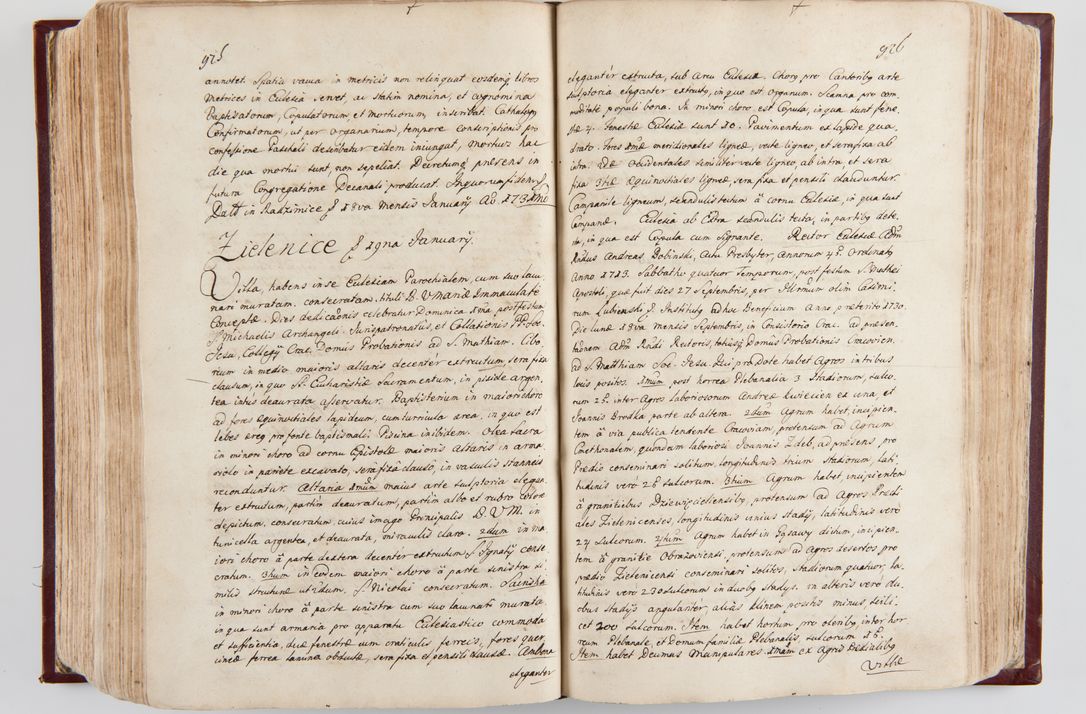 925
annotet. Spatia vacua in metricis non relinquat eozdemq libros
Metrices in Ecclesia servet, ac statim nomina, et cognomina
Baptisatorum, Copulatorum, et Mortuorum, inscribat. Cathalogū
Confirmatorum, ut per organarium, tempore conscriptionis pro
confessione Paschali describatur eidem iniungat, mortuos hac
die qua mortui sunt, non sepeliat. Decretumq præsens in
futura Congregatione Decanali producat. In quorum fidem
Datt in Radzimice 18va Mensis January Ao 1731mo
Zielenice 19na January.
Villa, habens in se Ecclesiam Parochialem, cum suo lacu
nari muratam. consecratam. tituli B. V Mariæ Immaculatè
Conceptæ. Dies dedicaōnis celebratur Dominica 1ma post festum
S. Michaelis Archangeli. Jurispatronatus, et Collationis PP. Soc.
Jesu, Collegij Crac. Domus Probationis ad S. Mathiam. Cibo,
rium in medio maioris altaris decentèr extructum, sera fixa
clausum, in quo SS. Eucharistiæ Sacramentum, in pixide argen,
tea intus deaurata asservatur. Baptisterium in maiori choro
ad fores æquinoctiales lapideum, cum turricula ærea, in quo est
lebes æreq pro fonte baptismali; Piscina inibidem. Olea Sacra
in minori choro ad cornu Epistolæ maioris Altaris in arma
riolo in pariete excavato, sera fixa clauso, in vasculis stanneis
reconduntur. Altaria 1mum maius arte sculptoria elegan,
ter extructum, partim deauratum, partim albo et rubro colore
depictum, consecratum, cuius imago Principalis B. V M. in
tunicella argentea, et deaurata, miraculis clara. 2dum in ma
iori choro à parte dextera decentèr extructum S. Ignatij conse
cratum. 3tium in eodem maiori choro à parte sinistra si
milis structuræ ut 2dum. S. Nicolai consecratum. Sacristia
in minori choro à parte sinistra cum suo lacunari murata
in qua sunt armaria pro apparatu Ecclesiastico commoda
et sufficientia, duæ fenestræ cum craticulis ferreis, fores quer,
cineæ ferrea lamina obductæ, sera fixa et pensili clausæ. Ambona
eleganter
926
elegantèr extructa, sub arcu Ecclesiæ. Chorq pro Cantoribq arte
sculptoria eleganter extructq, in quo est organum. Scamna pro com,
moditatè populi bona. In minori choro est Copula, in qua sunt fene,
stræ 4. fenestræ Ecclesiæ sunt 10. Pavimentum ex lapide qua,
drato. Fores 1mæ meridionales ligneæ, vecte ligneo, et sera fixa ab
intra. 2dæ Occidentales similiter vecte ligneo, ab intra, et sera
fixa 3tiæ Æquinoctiales ligneæ, sera fixa et pensili clauduntur.
Campanile ligneum, scandulis tectum à cornu Ecclesiæ, in qua sunt
Campanæ. Ecclesia ab Extra scandulis tecta, in partibq dete,
rior, in qua est Copula cum Signante. Rector Ecclesiæ Adm
Rndus Andreas Dobinski, Actu Presbyter, Annorum 45. Ordinatq
Anno 1713. Sabbatho quatuor Temporum, post festum S. Mathei
Apostoli, quæ fuit dies 27 Septembris, per Illrmum olim Casimi,
rum Łubienski Institutq ad hoc Beneficium Anno præterito 1730.
Die lunæ 18va Mensis Septembris, in Consistorio Crac. ad præsen,
taōnem Adm Rndi Rectoris, totiusq Domus Probationis Cracovien.
ad S. Matthiam Soc. Jesu. Qui pro Dote habet Agros in tribus
locis positos. 1mum post horrea Plebanalia 3 Stadiorum, sulco,
rum 25. inter Agros laboriosorum Andreæ Kwiecien ex una, et
Joannis Brodka parte ab altera. 2dum Agrum habet, incipien,
tem à via publica tendente Cracoviam, protensum ad Agrum
Cmethonalem, quondam laboriosi Joannis Zdeb, ad præsens, pro
Prædio conseminari solitum, longitudinis trium stadiorum, lati,
tudinis verò 28 sulcorum. 3tium Agrum habet, incipientem
à granitiebus Dziewięcielensibq, protensum ad Agros Prædi
ales Zielenicenses, longitudinis unius stadij, latitudinis verò
24 sulcorum. 4tum Agrum habet in Pjasawy dictum, incipien,
tem à granitie Obrazoviensi, protensum ad Agros desertos pro
prædio Zielenicensi conseminari solitos, stadiorum quatuor, la,
titudinis verò 230 sulcorum in duobq stadys. in alteris verò du,
obus stadijs angulariter, aliàs Klinem positis minus, scili,
cet 200 sulcorum. Item habet hortum pro oleribq, inter hor
reum Plebanale, et Domum familiæ Plebanalis, sulcorum 16.
Item habet Decimas Manipulares. 1mam ex Agris Prædialibq
Villæ